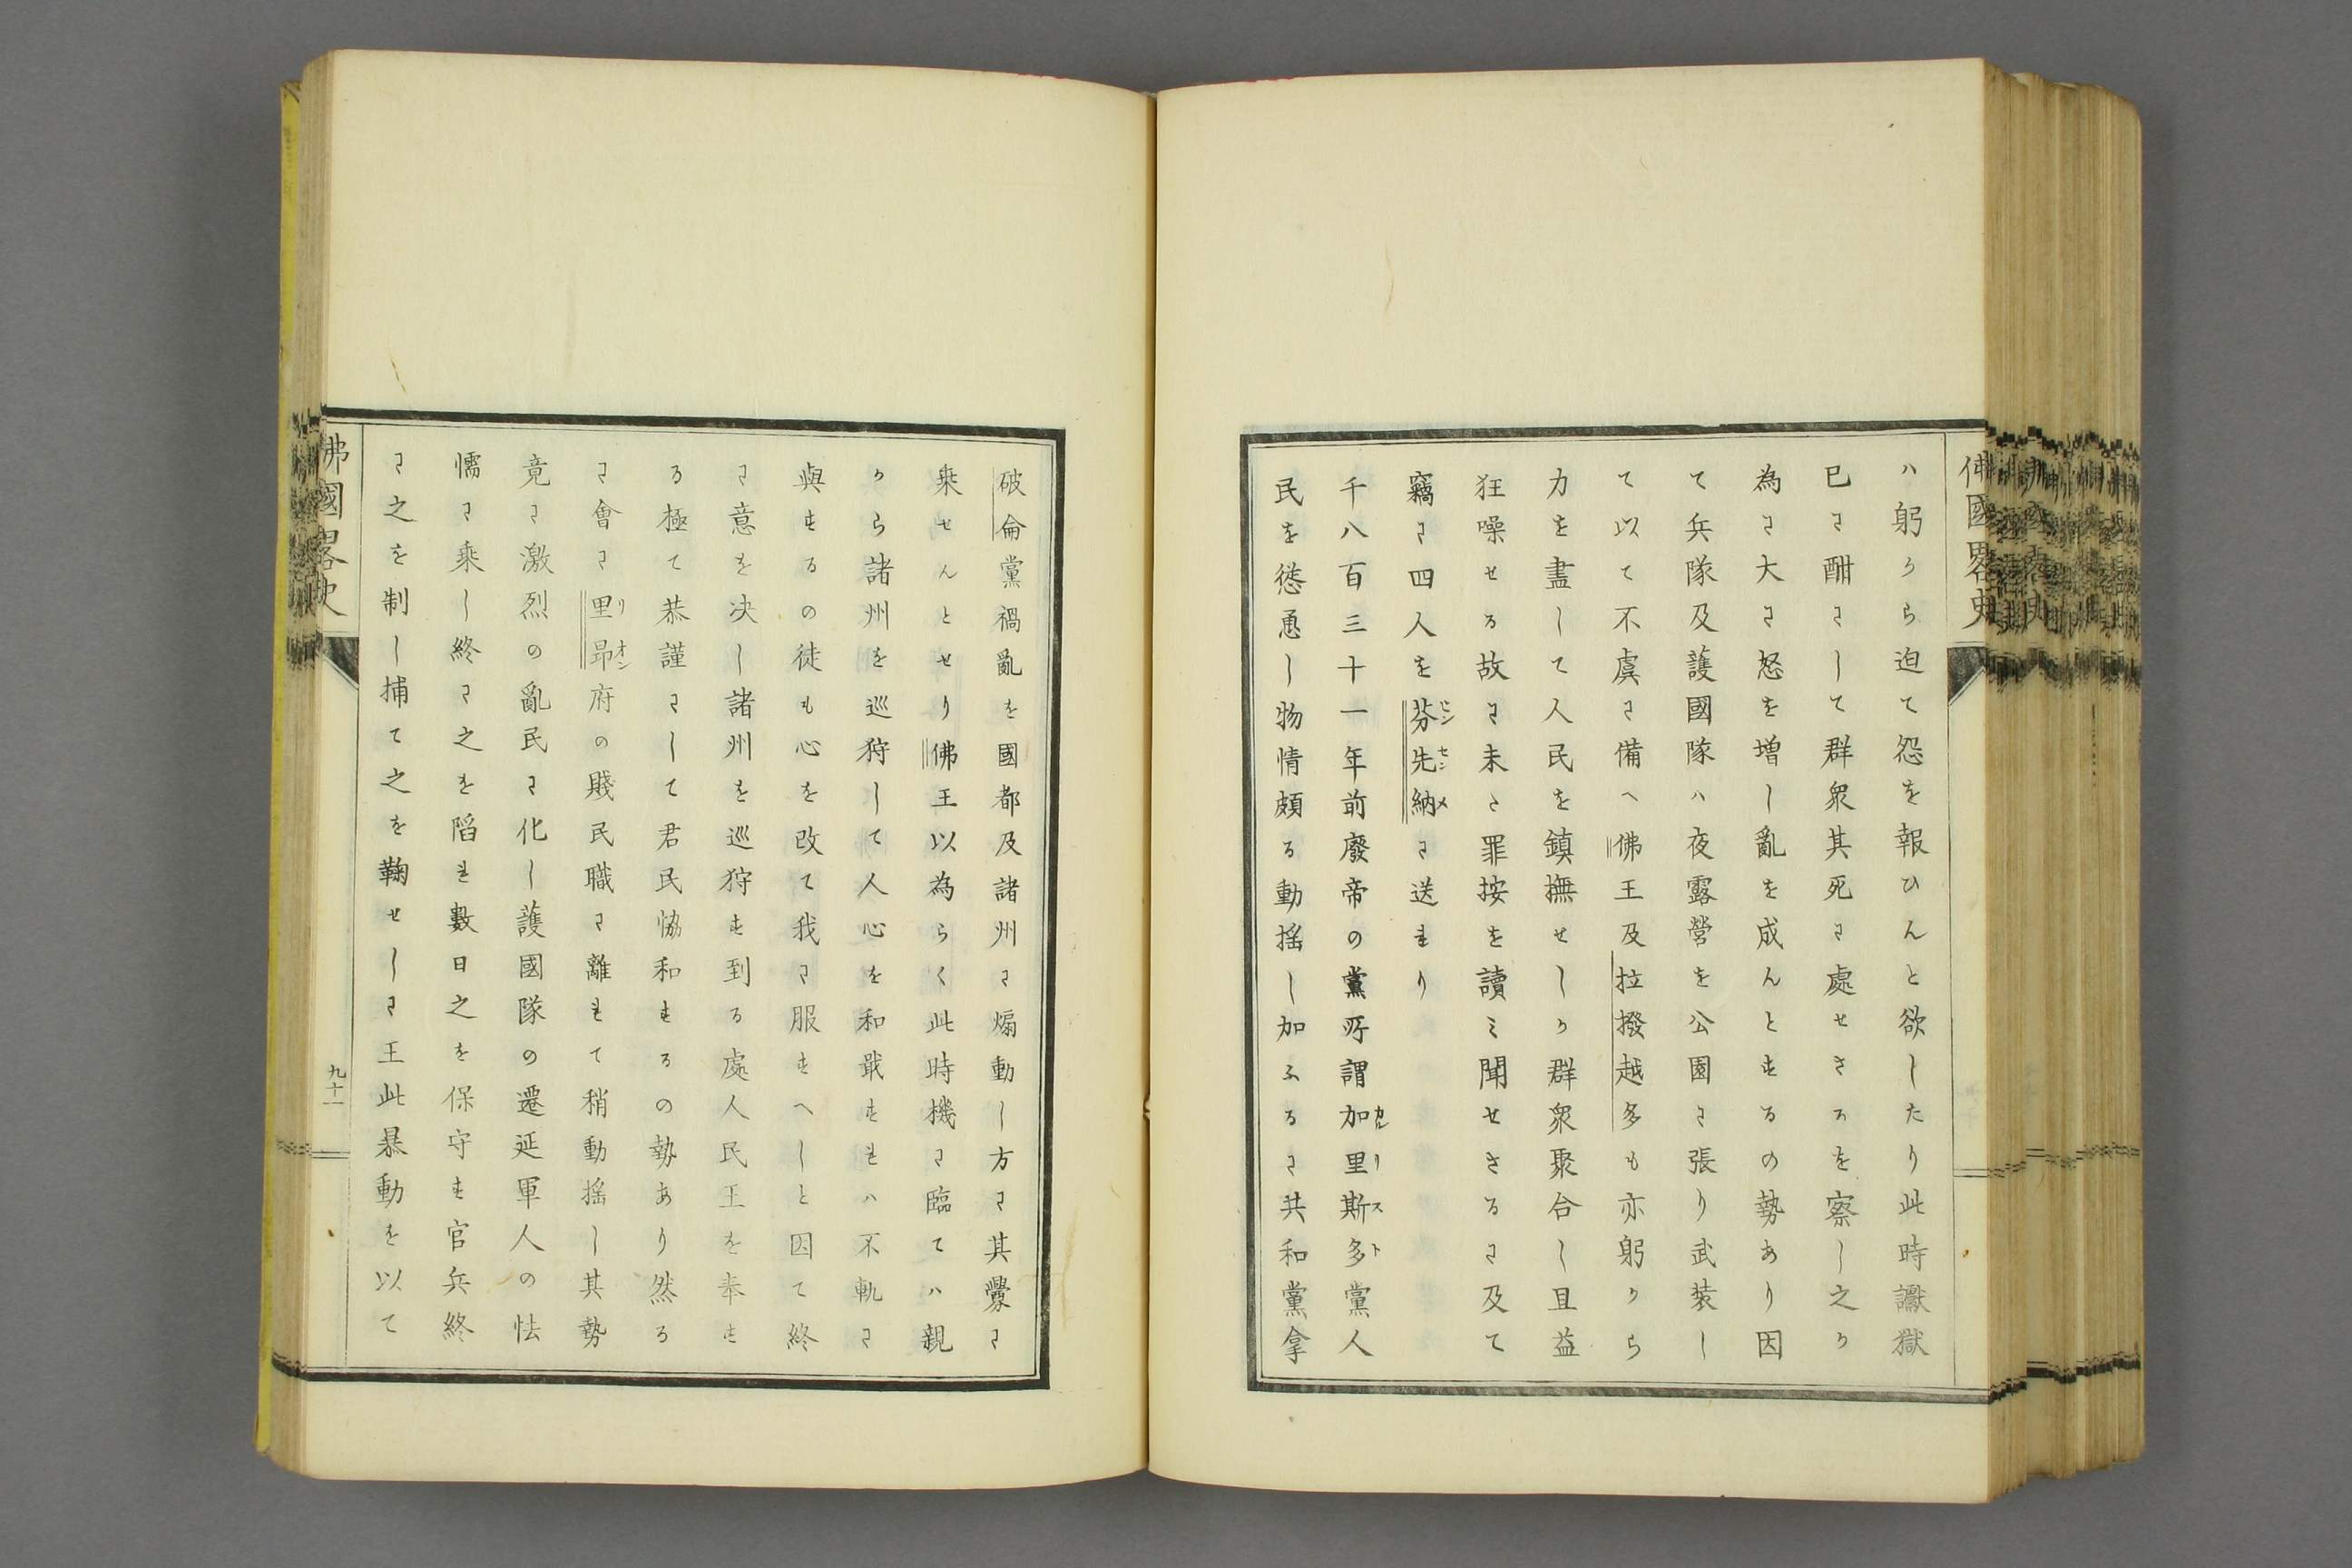 佛國畧史
ハ躬から迫て怨を報ひんと欲したり此時讞獄
已に酣にして群衆其死に處せさるを察し之か
為に大に怒を増し亂を成んとするの勢あり因
て兵隊及護國隊ハ夜露營を公園に張り武装し
て以て不虞に備へ佛王及拉撥越多も亦躬から
力を盡して人民を鎮撫せしか群衆聚合し且益
狂噪せる故に未た罪按を讀ミ聞せさるに及て
竊に四人を芬先納に送れり
ヒンセンメ
千八百三十一年前廢帝の黨所謂加里斯多黨人
カルリスト
民を慫慂し物情頗る動揺し加ふるに共和黨拿
破侖黨禍亂を國都及諸州に煽動し方に其釁に
乗せんとせり佛王以為らく此時機に臨てハ親
から諸州を巡狩して人心を和戢すれハ不軌に
與するの徒も心を改て我に服すへしと因て終
に意を决し諸州を巡狩す到る處人民王を奉す
る極て恭謹にして君民恊和するの勢あり然る
に會に里昂府の賤民職に離れて稍動揺し其勢
リオン
竟に激烈の亂民に化し護國隊の遷延軍人の怯
懦に乘し終に之を陷れ數日之を保守す官兵終
に之を制し捕て之を鞠せしに王此暴動を以て
佛國畧史
九十一